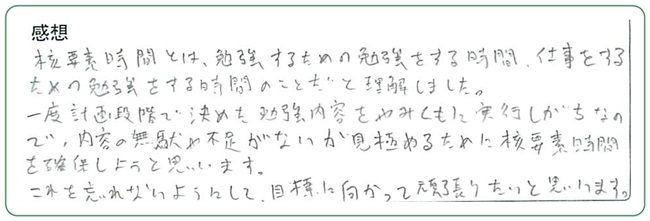 感想
核要素時間とは、勉強するための勉強をする時間、仕事をする
ための勉強をする時間のことだと理解しました。
一度計画段階で決めた勉強内容をやみくもに実行しがちなの
で、内容の無駄や不足がないか見極めるために核要素時間
を確保しようと思います。
これを忘れないようにして、目標に向かって頑張りたいと思います。